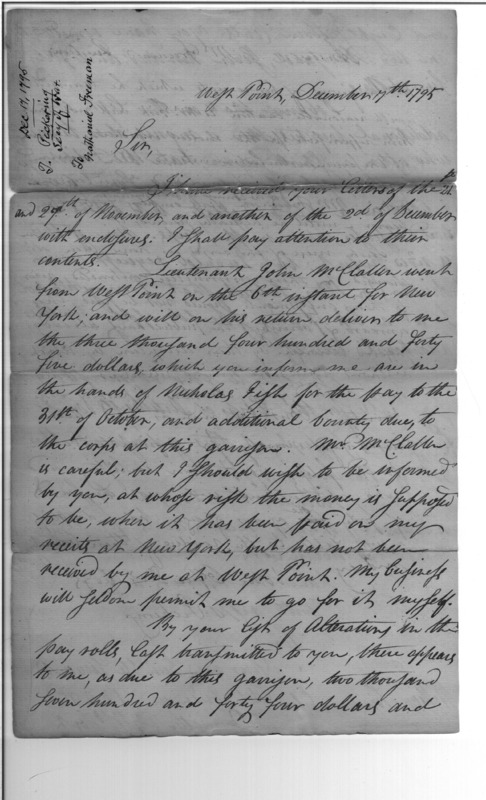 Dec 17, 1795
T. Pickering
Secy of War.
To
Nathaniel Freeman
West Point, December 17th. 1795
Sir,
I have received your letters of the 21st
and 27th of November, and another of the 2d of December
with enclosures. I shall pay attention to their
contents.
Lieutenant John McClallen went
from West Point on the 6th instant for New
York; and will on his return deliver to me
the three thousand four hundred and forty
five dollars, which you inform me are in
the hands of Nicholas Fish for the pay to the
31st of October, and additional bounty due, to
the corps at this garrison. Mr. McClallen
is careful; but I should wish to be informed
by you, at whose risk the money is supposed
to be, when it has been paid on my
receits at New York, but has not been
received by me at West Point. My business
will seldom permit me to go for it myself.
By your list of Alterations in the
pay rolls, last transmitted to you, there appears
to me, as due to this garrison, two thousand
seven hundred and forty four dollars and